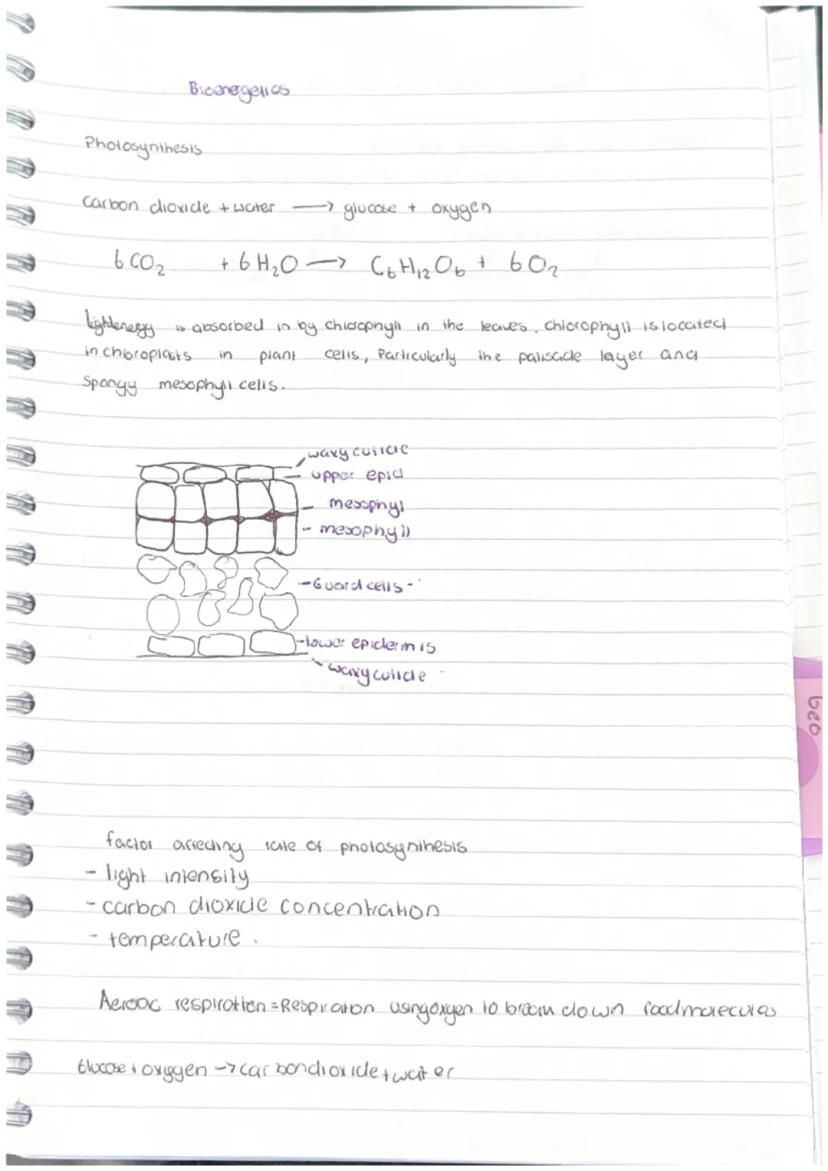 Bioenergetics
Photosynthesis
carbon dioxide + water → glucose + oxygen
6CO₂ + 6H₂O → C₆H₁₂O₆ + 6O₂
lightenergy is absorbed in by chlorophyll in the leaves. chlorophyll is located
in chloroplasts in plant cells, Particularly the palisade layer and
Spongy mesophyll cells.
waxy cuticle
upper epid
mesophyl
mesophyll
Guard cells
lower epidermis
waxy cuticle
geo
factor affecting rate of photosynthesis
- light intensity
- carbon dioxide concentration
- temperature.
Aerobic respiration = Respiration using oxygen to break down food molecules
Glucose + oxygen → carbon dioxide + water